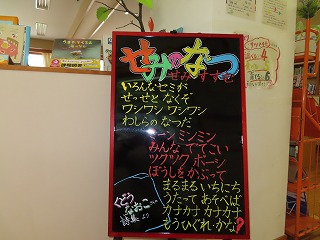 せみのなつ
せみすずむ
いろんなセミが
せっせと なくぞ
ワシワシ ワシワシ
わしらの なつだ
ミーンミンミン
みんな でてこい
ツクツク ボーシ
ぼうしをかぶって
まるまる いちにち
うたって あそべば
カナカナ カナカナ
もうひぐれ・かな?
くどう
なおこさん
詩集より